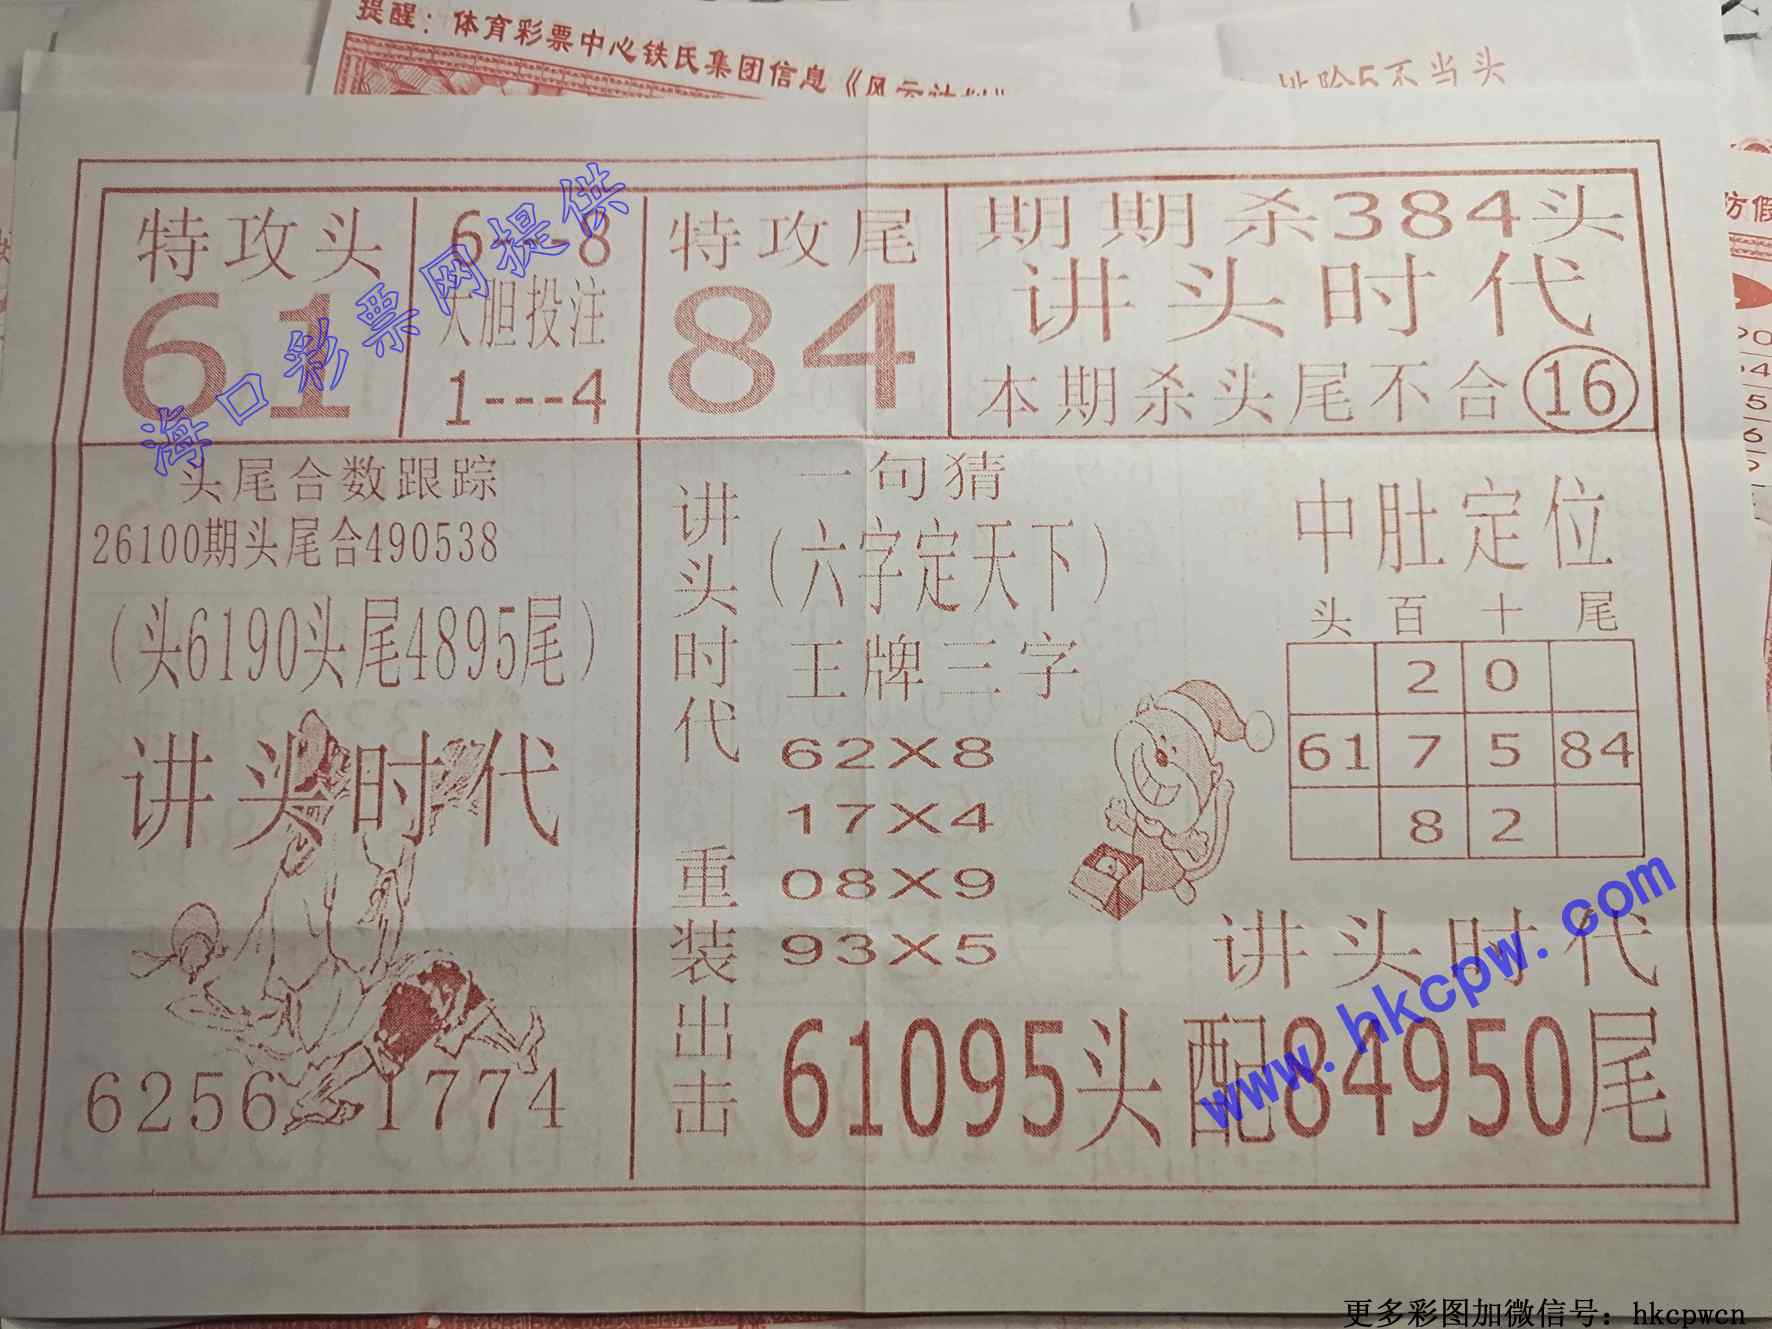 提醒：体育彩票中心铁氏集团信息《风云计划》
不当头
防假
特攻头
61
6---8
大胆投注
1---4
特攻尾
84
期期杀384头
讲头时代
本期杀头尾不合 16
头尾合数跟踪
26100期头尾合490538
（头6190头尾4895尾）
讲头时代
6256 1774
讲头时代 重装出击
一句猜
（六字定天下）
王牌三字
62X8
17X4
08X9
93X5
中肚定位
头 百 十 尾
2 0
61 7 5 84
8 2
讲头时代
61095头 配84950尾
海口彩票网提供
www.hkcpw.com
更多彩图加微信号：hkcpwcn